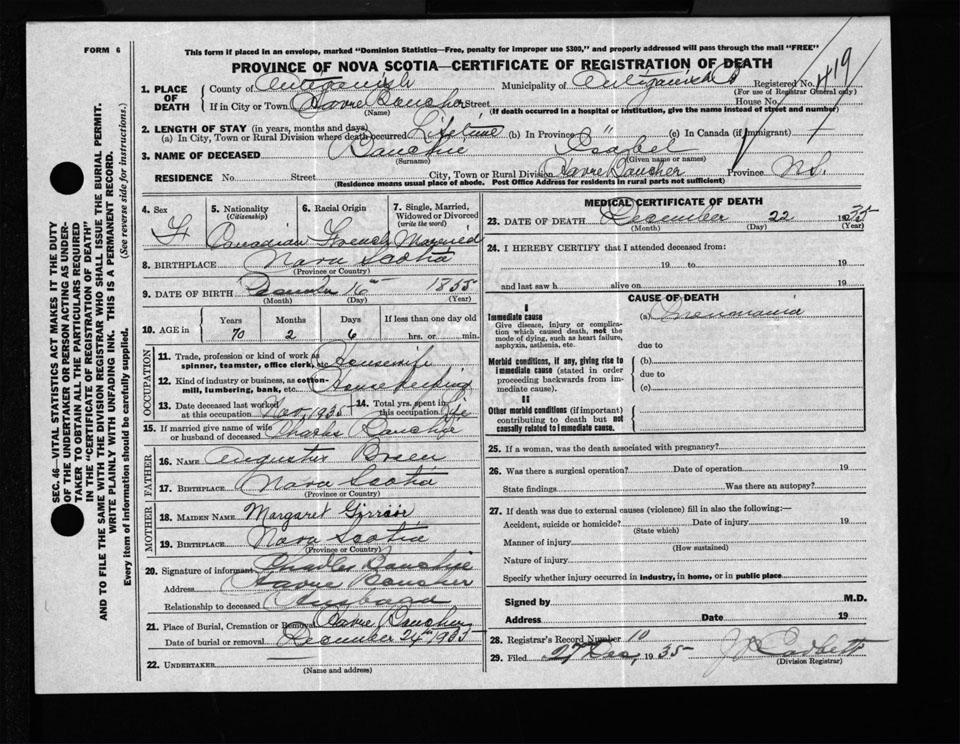 FORM 6
This form if placed in an envelope, marked "Dominion Statistics—Free, penalty for improper use $300," and properly addressed will pass through the mail "FREE"
PROVINCE OF NOVA SCOTIA—CERTIFICATE OF REGISTRATION OF DEATH
1. PLACE OF DEATH
County of Antigonish Municipality of Antigonish Registered No. 419
(For use of Registrar General only)
If in City or Town Havre Boucher Street House No.
(Name) (If death occurred in a hospital or institution, give the name instead of street and number)
2. LENGTH OF STAY (in years, months and days)
(a) In City, Town or Rural Division where death occurred Lifetime (b) In Province " (c) In Canada (if immigrant)
3. NAME OF DECEASED Isabel
(Surname) (Given name or names)
RESIDENCE No. Street City, Town or Rural Division Havre Boucher Province N.S.
(Residence means usual place of abode. Post Office Address for residents in rural parts not sufficient)
4. Sex F
5. Nationality (Citizenship) Canadian
6. Racial Origin French
7. Single, Married, Widowed or Divorced (write the word) Married
8. BIRTHPLACE Nova Scotia
(Province or Country)
9. DATE OF BIRTH 16 1855
(Month) (Day) (Year)
10. AGE in Years Months Days If less than one day old
70 2 6 hrs. or min.
OCCUPATION
11. Trade, profession or kind of work as spinner, teamster, office clerk, etc. Housewife
12. Kind of industry or business, as cotton-mill, lumbering, bank, etc. House keeping
13. Date deceased last worked at this occupation Nov. 1935
14. Total yrs. spent in this occupation Life
15. If married give name of wife or husband of deceased Charles
FATHER
16. NAME
17. BIRTHPLACE Nova Scotia
(Province or Country)
MOTHER
18. MAIDEN NAME Margaret
19. BIRTHPLACE Nova Scotia
(Province or Country)
20. Signature of informant Charles
Address Havre Boucher
Relationship to deceased Husband
21. Place of Burial, Cremation or Removal Havre Boucher
Date of burial or removal December 24th 1935
22. UNDERTAKER
(Name and address)
MEDICAL CERTIFICATE OF DEATH
23. DATE OF DEATH December 22 1935
(Month) (Day) (Year)
24. I HEREBY CERTIFY that I attended deceased from:
19 to 19
and last saw h alive on 19
CAUSE OF DEATH
I
Immediate cause
Give disease, injury or complication which caused death, not the mode of dying, such as heart failure, asphyxia, asthenia, etc.
(a)
due to
Morbid conditions, if any, giving rise to immediate cause (stated in order proceeding backwards from immediate cause).
(b)
due to
(c)
II
Other morbid conditions (if important) contributing to death but not causally related to immediate cause.
25. If a woman, was the death associated with pregnancy?
26. Was there a surgical operation? Date of operation 19
State findings Was there an autopsy?
27. If death was due to external causes (violence) fill in also the following:—
Accident, suicide or homicide? Date of injury 19
(State which)
Manner of injury
(How sustained)
Nature of injury
Specify whether injury occurred in industry, in home, or in public place
Signed by M.D.
Address Date 19
28. Registrar's Record Number 10
29. Filed 27 Dec, 1935
(Division Registrar)
SEC. 46—VITAL STATISTICS ACT MAKES IT THE DUTY
OF THE UNDERTAKER OR PERSON ACTING AS UNDER-
TAKER TO OBTAIN ALL THE PARTICULARS REQUIRED
IN THE "CERTIFICATE OF REGISTRATION OF DEATH"
AND TO FILE THE SAME WITH THE DIVISION REGISTRAR WHO SHALL ISSUE THE BURIAL PERMIT.
WRITE PLAINLY WITH UNFADING INK. THIS IS A PERMANENT RECORD.
Every item of information should be carefully supplied. (See reverse side for instructions.)